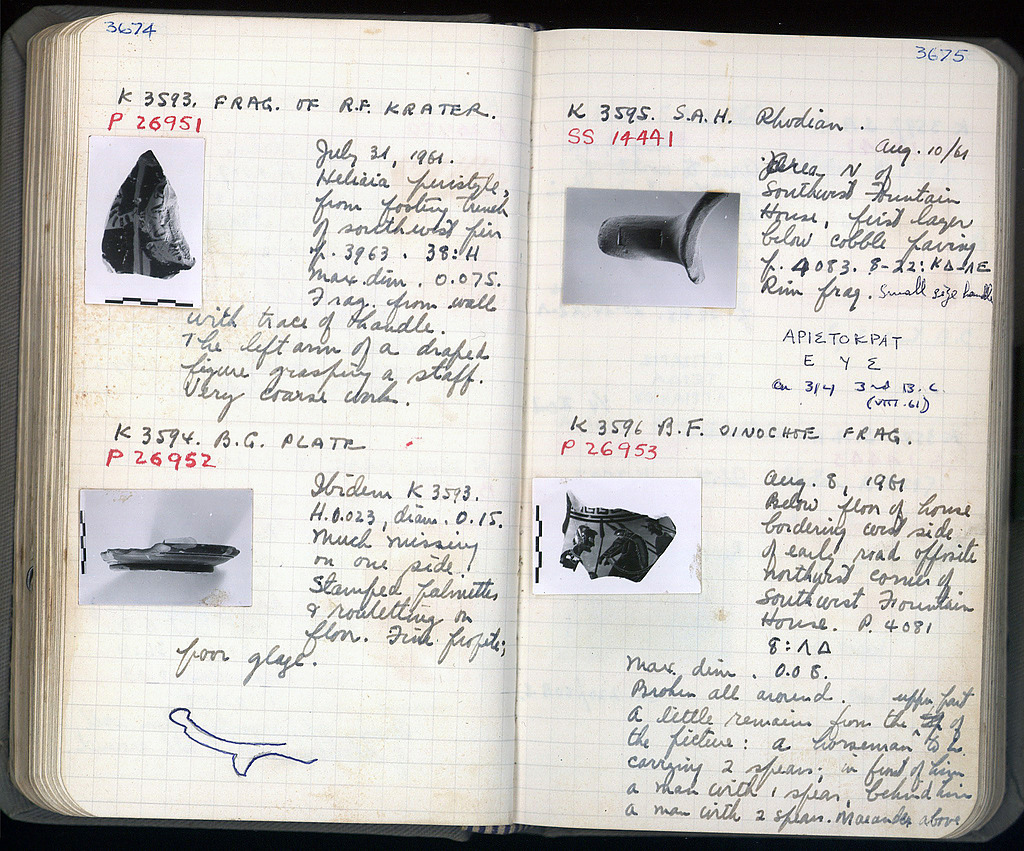 3674
K 3593. FRAG. OF R.F. KRATER.
P 26951
July 31, 1961.
Heliaia peristyle,
from footing trench
of southwest pier
p. 3963. 38:H
Max. dim. 0.075.
Frag. from wall
with trace of handle.
The left arm of a draped
figure grasping a staff.
Very coarse work.
K 3594. B.G. PLATE
P 26952
Ibidem K 3593.
H. 0.023, diam. 0.15.
Much missing
on one side.
Stamped palmettes
& rouletting on
floor. Fine profile;
poor glaze.
3675
K 3595. S.A.H. Rhodian.
SS 14441
Aug. 10/61
Area N of
Southwest Fountain
House, first layer
below cobble paving
p. 4083. 8-22: ΚΔ-ΛΕ
Rim frag. Small size handle
ΑΡΙΣΤΟΚΡΑΤ
Ε Υ Σ
Ca 3/4 3rd B.C.
(VIII.61)
K 3596 B.F. OINOCHOE FRAG.
P 26953
Aug. 8, 1961
Below floor of house
bordering west side
of early road opposite
northwest corner of
Southwest Fountain
House. P. 4081
8: ΛΔ
Max. dim. 0.08.
Broken all around.
A little remains from the upper part of
the picture: a horseman to L.
carrying 2 spears; in front of him
a man with 1 spear, behind him
a man with 2 spears. Maeander above